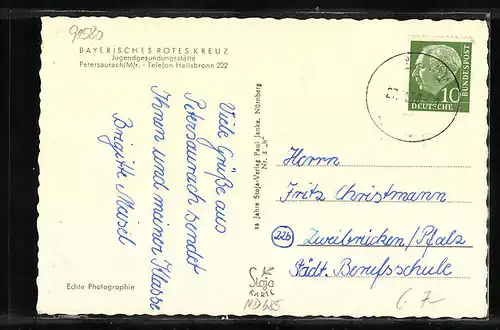 91580
BAYERISCHES ROTES KREUZ
Jugendgesundungsstätte
Petersaurach/Mfr. - Telefon Heilsbronn 222
Viele Grüße aus
Petersaurach sendet
Ihnen und meiner Klasse
Brigitte Meisel
Echte Photographie
Jahre Stoja-Verlag Paul Janke, Nürnberg
Stoja
KARTE
ND 685
27.
DEUTSCHE
BUNDESPOST
10
Herrn
Fritz Christmann
22b Zweibrücken/Pfalz
Städt. Berufsschule